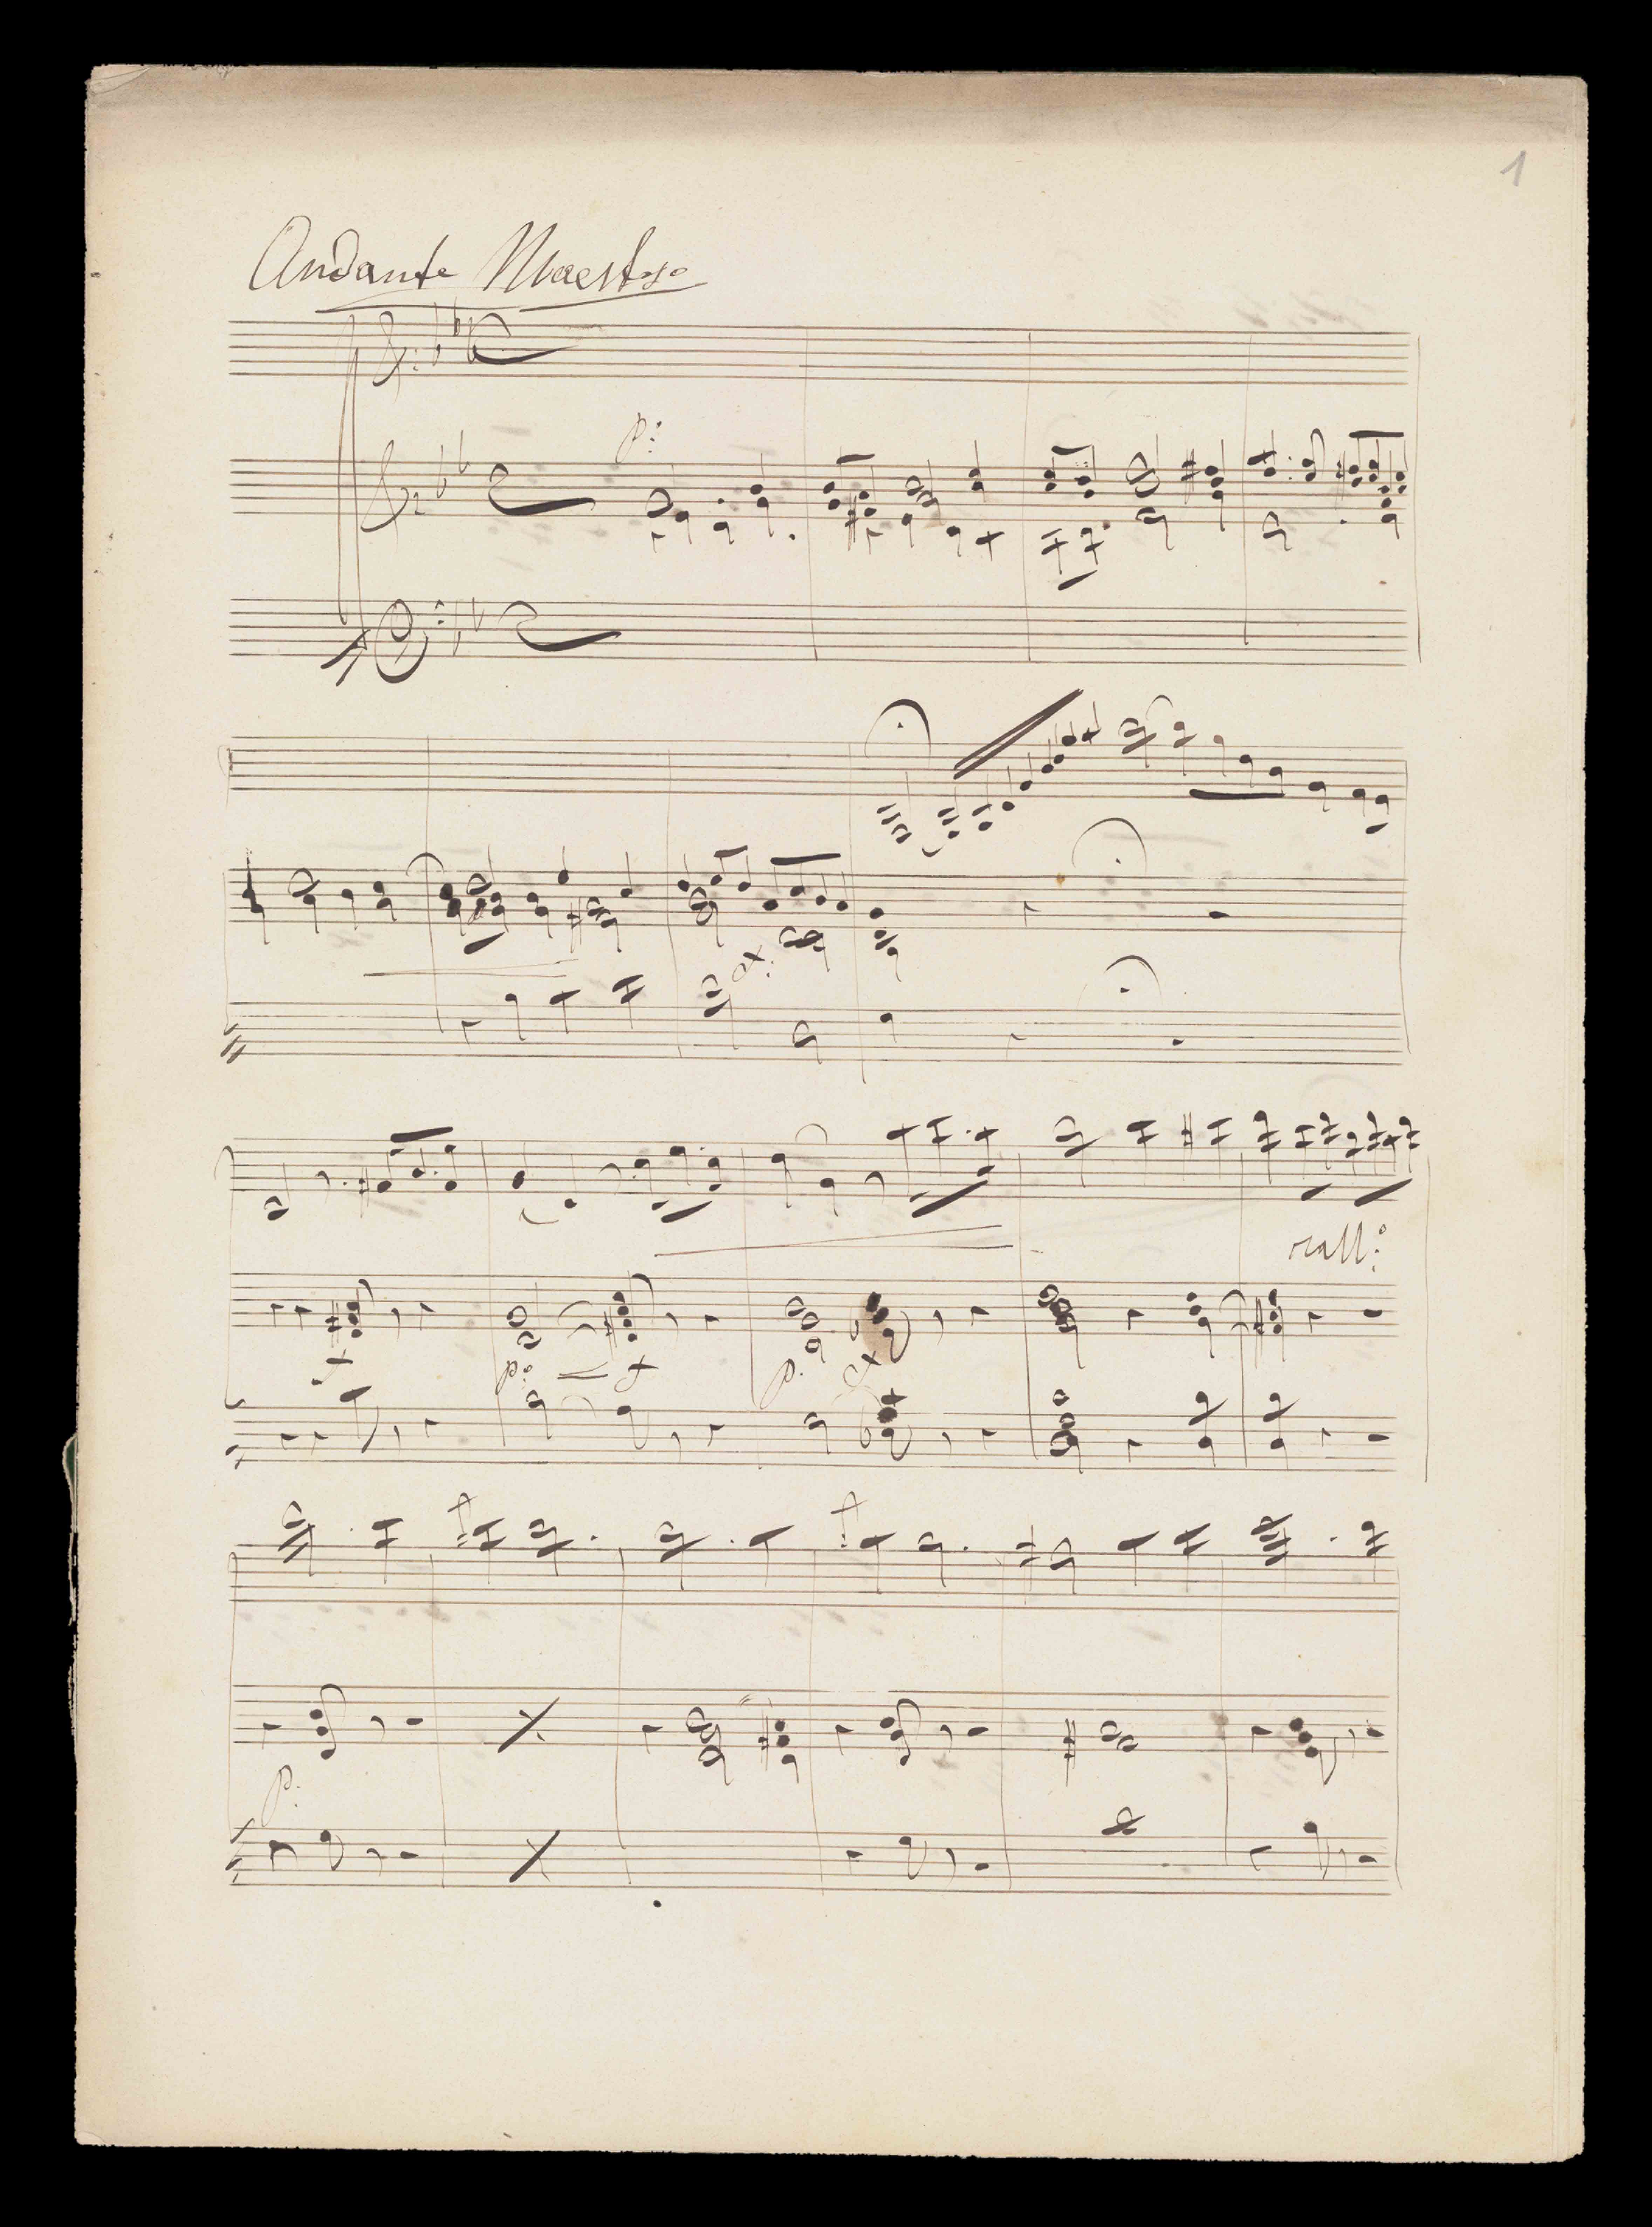 1
Andante Maestoso
p:
rall:
f
p:
f
p.
p: